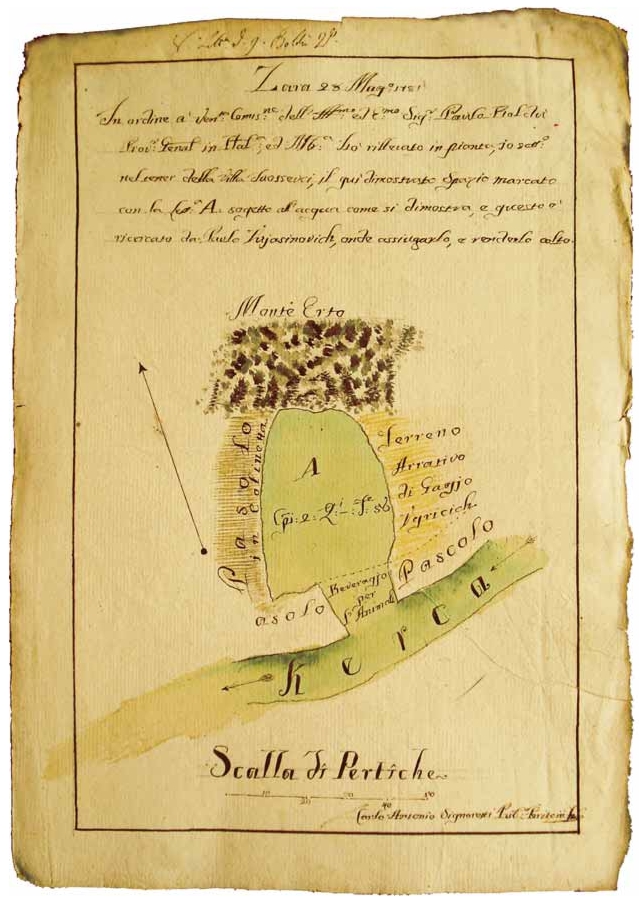 Zara 28 Mag:º 1781
In ordine a' ven:ta Comis:ne dell' Ill:mo ed E:mo Sig:r Paulo Boldù
Prov:r Genal in Dal:a, ed Alb:a hò rillevato in pianta, io sott:o
nel tener della villa Suosseici, il qui dimostrato Spazio marcato
con la Lett:a A. sogetto al acqua come si dimostra, e questo è
ricercato da Paulo Vujasinovich, onde assiugarlo, e renderlo colto.
Monte Erto
Pascolo
in Colineta
A
Cpi: 2: Q:i – T:e 56
Terreno
Arrativo
di Gagjo
Pascolo
Beveraggio
per
Animali
asolo
Kerca
Scalla di Pertiche
10 20 30 40 50
Carlo Antonio Signoretti Pub: